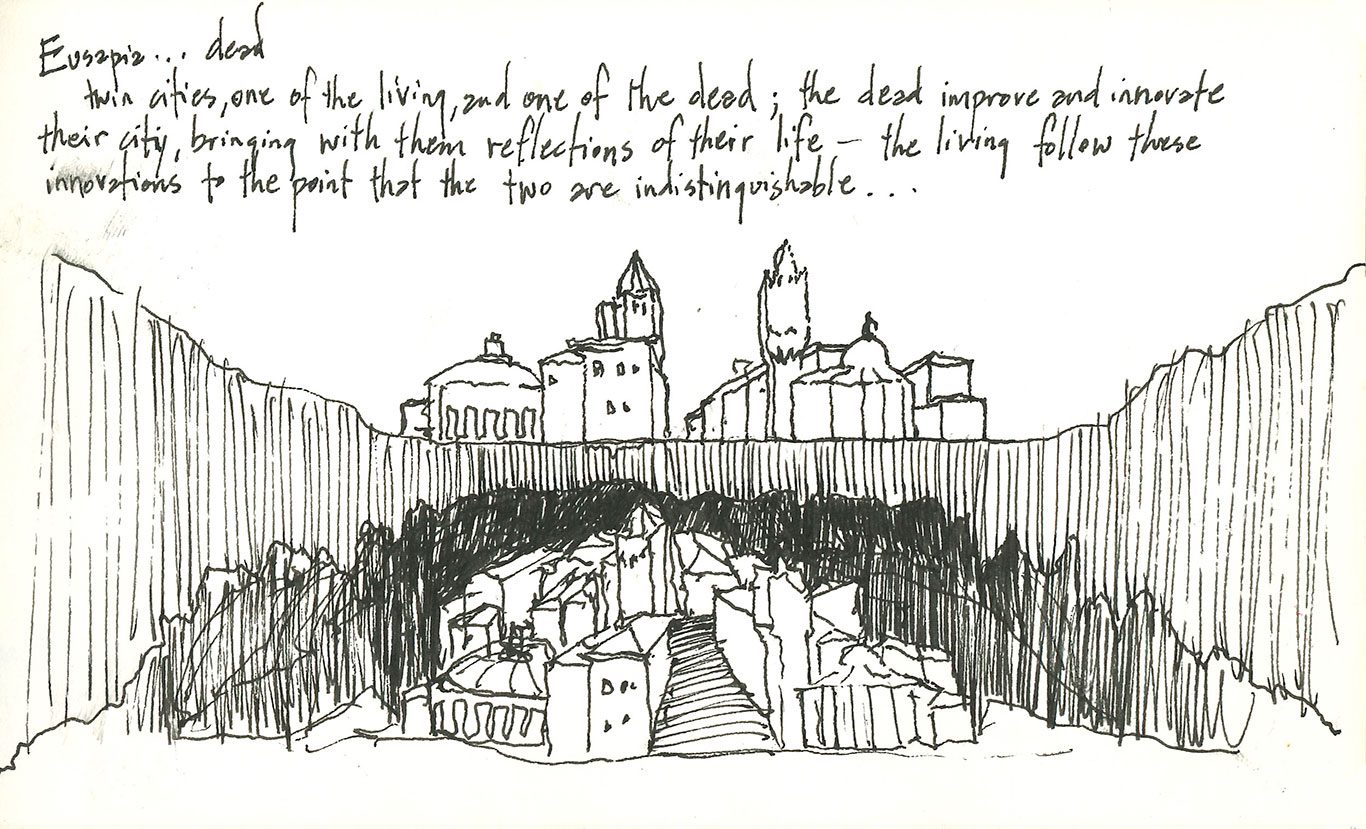 Eusapia... dead
twin cities, one of the living, and one of the dead; the dead improve and innovate
their city, bringing with them reflections of their life — the living follow these
innovations to the point that the two are indistinguishable...